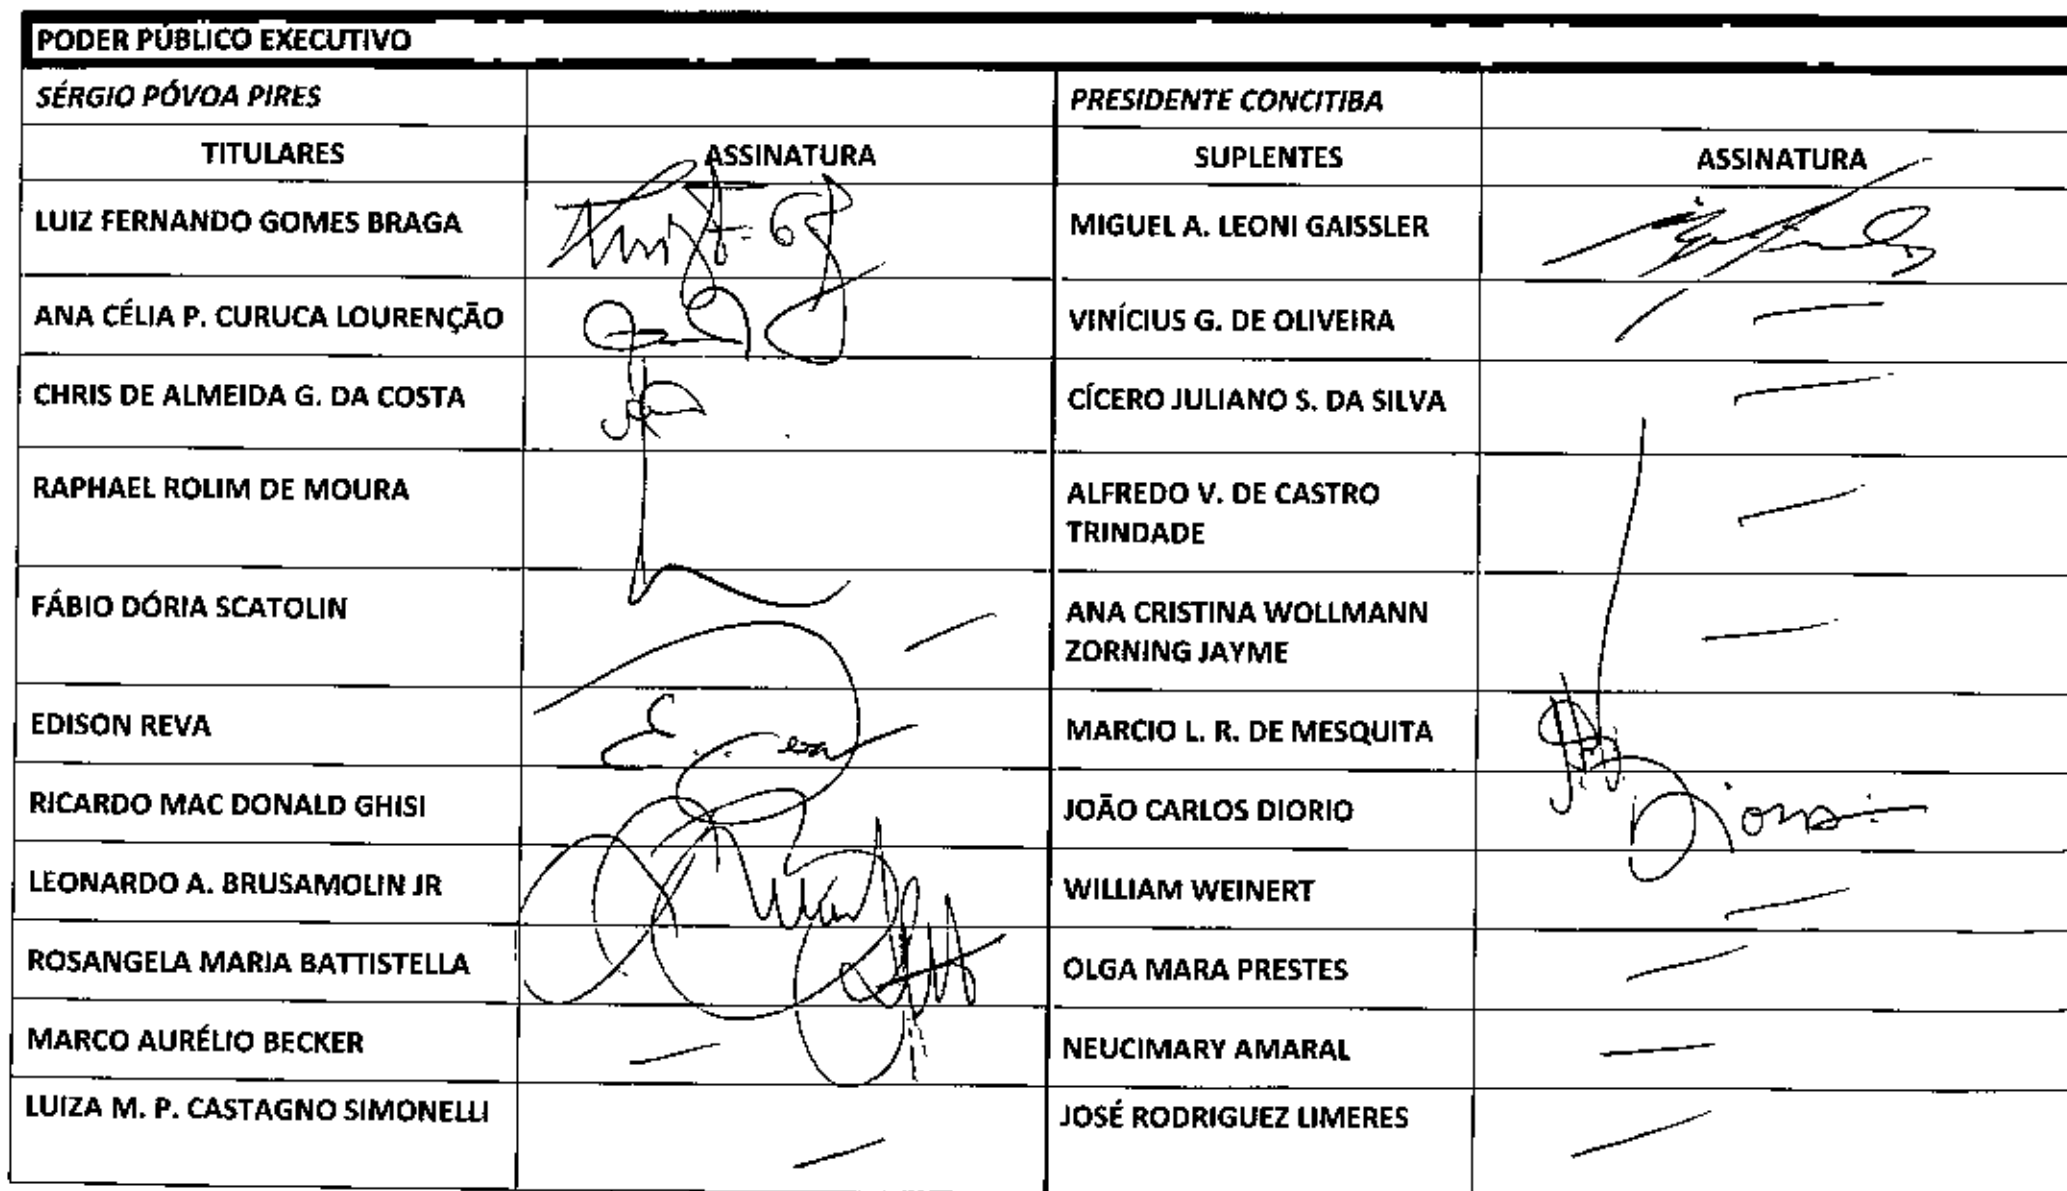 PODER PÚBLICO EXECUTIVO
SÉRGIO PÓVOA PIRES PRESIDENTE CONCITIBA
TITULARES ASSINATURA SUPLENTES ASSINATURA
LUIZ FERNANDO GOMES BRAGA MIGUEL A. LEONI GAISSLER
ANA CÉLIA P. CURUCA LOURENÇÃO VINÍCIUS G. DE OLIVEIRA
CHRIS DE ALMEIDA G. DA COSTA CÍCERO JULIANO S. DA SILVA
RAPHAEL ROLIM DE MOURA ALFREDO V. DE CASTRO
TRINDADE
FÁBIO DÓRIA SCATOLIN ANA CRISTINA WOLLMANN
ZORNING JAYME
EDISON REVA MARCIO L. R. DE MESQUITA
RICARDO MAC DONALD GHISI JOÃO CARLOS DIORIO
LEONARDO A. BRUSAMOLIN JR WILLIAM WEINERT
ROSANGELA MARIA BATTISTELLA OLGA MARA PRESTES
MARCO AURÉLIO BECKER NEUCIMARY AMARAL
LUIZA M. P. CASTAGNO SIMONELLI JOSÉ RODRIGUEZ LIMERES